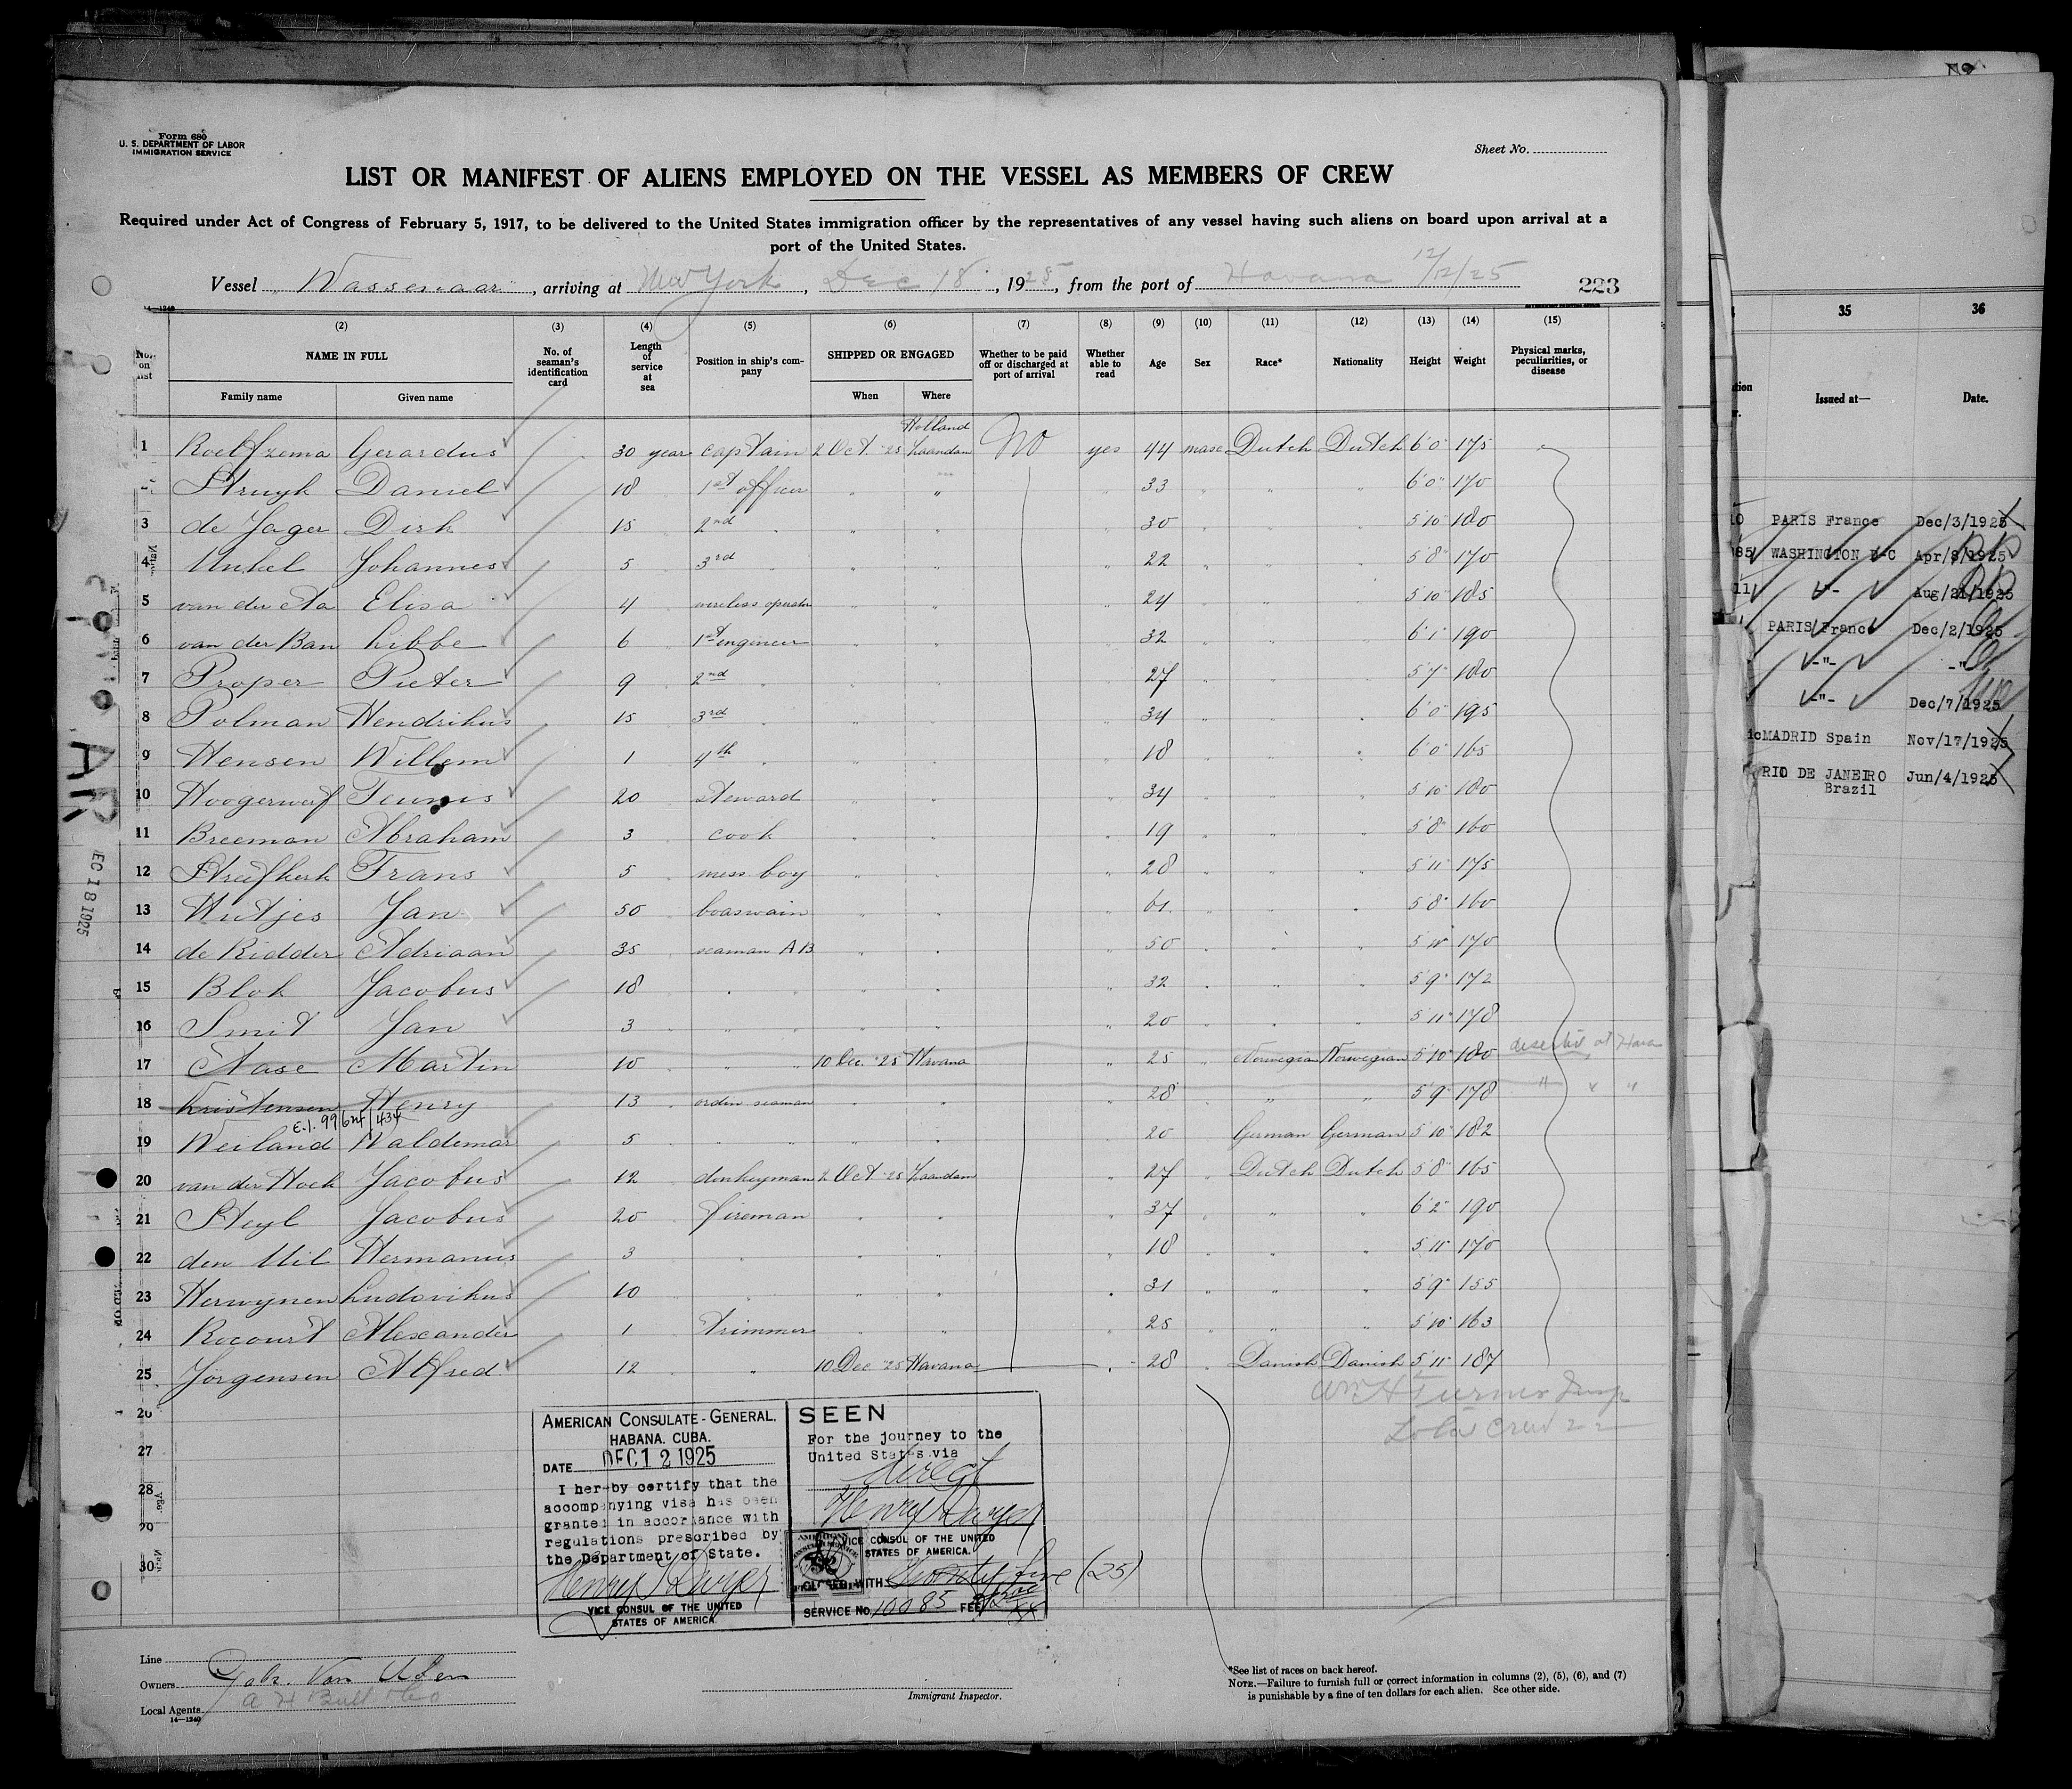 Form 680
U. S. DEPARTMENT OF LABOR
IMMIGRATION SERVICE
Sheet No.
LIST OR MANIFEST OF ALIENS EMPLOYED ON THE VESSEL AS MEMBERS OF CREW
Required under Act of Congress of February 5, 1917, to be delivered to the United States immigration officer by the representatives of any vessel having such aliens on board upon arrival at a
port of the United States.
Vessel Wassenaar, arriving at New York, Dec 18, 1925, from the port of Havana 12/12/25 223
(2) (3) (4) (5) (6) (7) (8) (9) (10) (11) (12) (13) (14) (15)
No. on list NAME IN FULL No. of seaman's identification card Length of service at sea Position in ship's company SHIPPED OR ENGAGED Whether to be paid off or discharged at port of arrival Whether able to read Age Sex Race* Nationality Height Weight Physical marks, peculiarities, or disease
Family name Given name When Where
Holland
1 Gerardus 30 year captain 2 Oct '25 Zaandam No yes 44 Dutch Dutch 6'0" 175
2 Struyk Daniel 18 1st officer " " 33 " " " 6'0" 170
3 de Jager Dirk 15 2nd " " " 30 " " " 5'10" 180
4 Unkel Johannes 5 3rd " " " 22 " " " 5'8" 170
5 van der Aa Elisa 4 wireless operator " " 24 " " " 5'10" 185
6 van der Ban Libbe 6 1st engineer " " 32 " " " 6'1" 190
7 Proper Pieter 9 2nd " " " 27 " " " 5'7" 180
8 Polman Hendrikus 15 3rd " " " 34 " " " 6'0" 195
9 Hensen Willem 1 4th " " " 18 " " " 6'0" 165
10 Hoogerwerf Teunis 20 steward " " 34 " " " 5'10" 180
11 Breeman Abraham 3 cook " " 19 " " " 5'8" 160
12 Streefkerk Frans 5 mess boy " " 28 " " " 5'11" 175
13 Hutjes Jan 50 boaswain " " 61 " " " 5'8" 160
14 de Ridder Adriaan 35 seaman AB " " 50 " " " 170
15 Blok Jacobus 18 " " " " 32 " " " 5'9" 172
16 Smit Jan 3 " " " " 20 " " " 5'11" 178
17 Aase Martin 10 " " 10 Dec. '25 Havana " 25 " Norwegian Norwegian 5'10" 180 at
18 Kristensen Henry 13 ordin. seaman " " 28 " " " 5'9" 178 " " "
19 Weiland Waldemar 5 " " " " 20 German German 5'10" 182
20 van der Hoek Jacobus 12 donkeyman 2 Oct '25 Zaandam " 27 " Dutch Dutch 5'8" 165
21 Steyl Jacobus 20 fireman " " 37 " " " 6'2" 190
22 den Uil Hermanus 3 " " " 18 " " " 5'11" 170
23 Herwynen Ludovikus 10 " " " 31 " " " 5'9" 155
24 Rocourt Alexander 1 trimmer " " 25 " " " 5'10" 163
25 Jorgensen Alfred 12 " 10 Dec '25 Havana " 28 " Danish Danish 5'11" 187
26
27
28
29
30
Wm H Turner Insp
Total Crew 22
AMERICAN CONSULATE-GENERAL,
HABANA. CUBA.
DATE DEC 12 1925
I hereby certify that the
accompanying visa has been
granted in accordance with
regulations prescribed by
the Department of State.
Henry Dwyer
VICE CONSUL OF THE UNITED
STATES OF AMERICA
SEEN
For the journey to the
United States via
direct
Henry Dwyer
VICE CONSUL OF THE UNITED
STATES OF AMERICA.
WITH Twenty five (25)
SERVICE No. 10085 FEE
Line
Owners
Local Agents A H Bull & Co
14—1240
Immigrant Inspector.
*See list of races on back hereof.
NOTE.—Failure to furnish full or correct information in columns (2), (5), (6), and (7)
is punishable by a fine of ten dollars for each alien. See other side.
AR
EC 18 1925
35 36
Issued at— Date.
PARIS France Dec/3/1925
85 WASHINGTON D-C Apr/8/1925
11 -"- Aug/21/1925
PARIS France Dec/2/1925
-"- -"-
-"- Dec/7/1925
MADRID Spain Nov/17/1925
RIO DE JANEIRO Jun/4/1925
Brazil